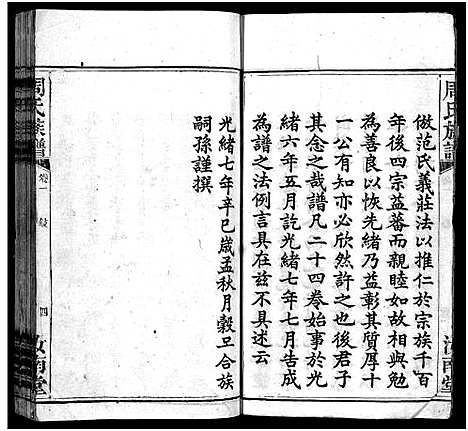 周氏族譜
汝南堂
倣范氏義莊法以推仁於宗族千百
年後四宗益蕃而親睦如故相與勉
為善良以恢先緒乃益彰其質厚十
一公有知亦必欣然許之也後君子
其念之哉譜凡二十四卷始事於光
緒六年五月訖光緒七年七月告成
為譜之法例言具在兹不具述云
光緒七年辛巳歲孟秋月穀旦合族
嗣孫謹撰
周氏族譜
卷一
四
汝南堂